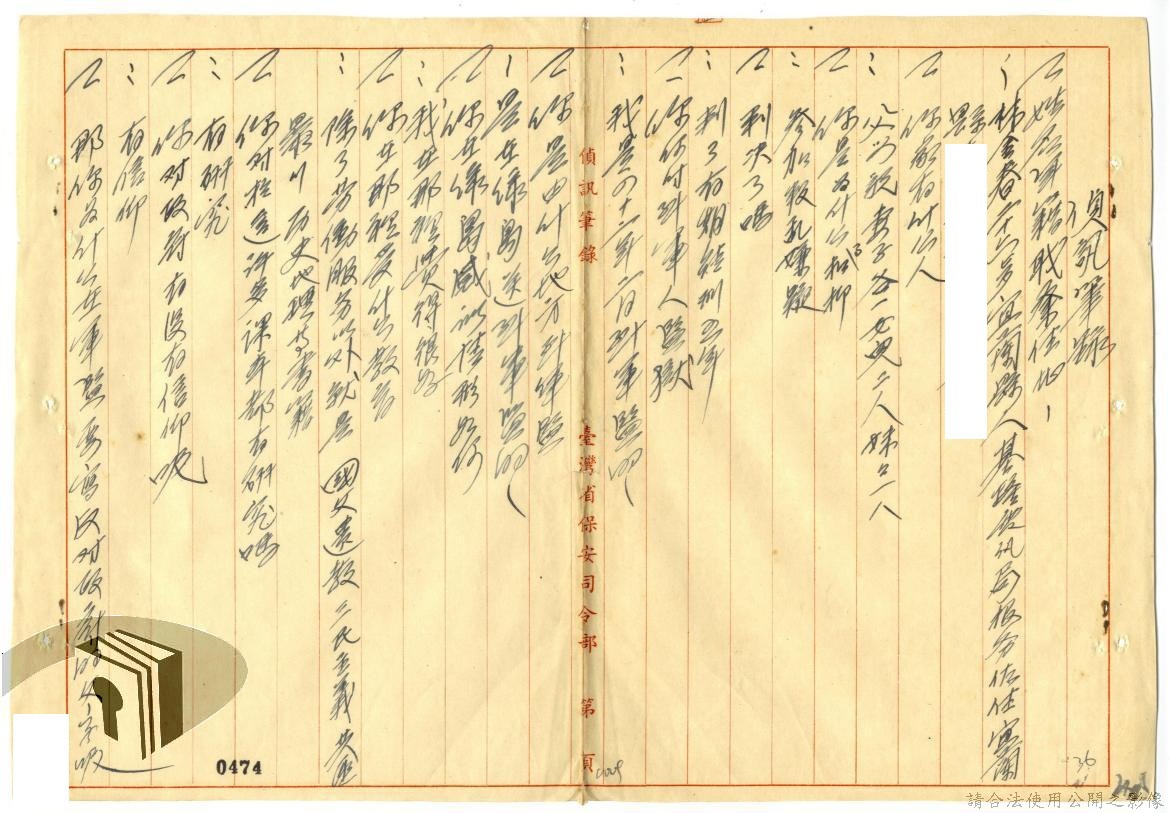 偵訊筆錄
姓名年籍職業住址
縣
你家有什么人
父母親妻子及一女兒二人妹二人
你是為什么扣押
參加叛乱嫌疑
判決了嗎
判了有期徒刑五年
你何時到軍人監獄
我是四十二年 月到軍監的
偵訊筆錄 臺灣省保安司令部 第 頁
你是由什么地方到軍監
是在綠島送到軍監的
你在綠島感訓情形如何
我在那裡過得很好
你在那裡受什么教育
除了勞働服務以外就是國父遺教三民主義共匪
暴行历史地理等書籍
你对於這許多課本都有研究嗎
有研究
你对政府有沒有信仰呢
有信仰
那你為什么在軍監要寫反对政府的文字呢
0474
請合法使用公開之影像